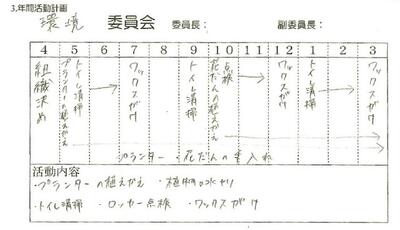 3.年間活動計画
環境 委員会 委員長： 副委員長：
4 5 6 7 8 9 10 11 12 1 2 3
組織決め
トイレ清掃
プランターの植えかえ
ワックスがけ
トイレ清掃
点検
花だんの植えかえ
ワックスがけ
トイレ清掃
ワックスがけ
プランター・花だんの手入れ
活動内容
・プランターの植えかえ ・植物の水やり
・トイレ清掃 ・ロッカー点検 ・ワックスがけ